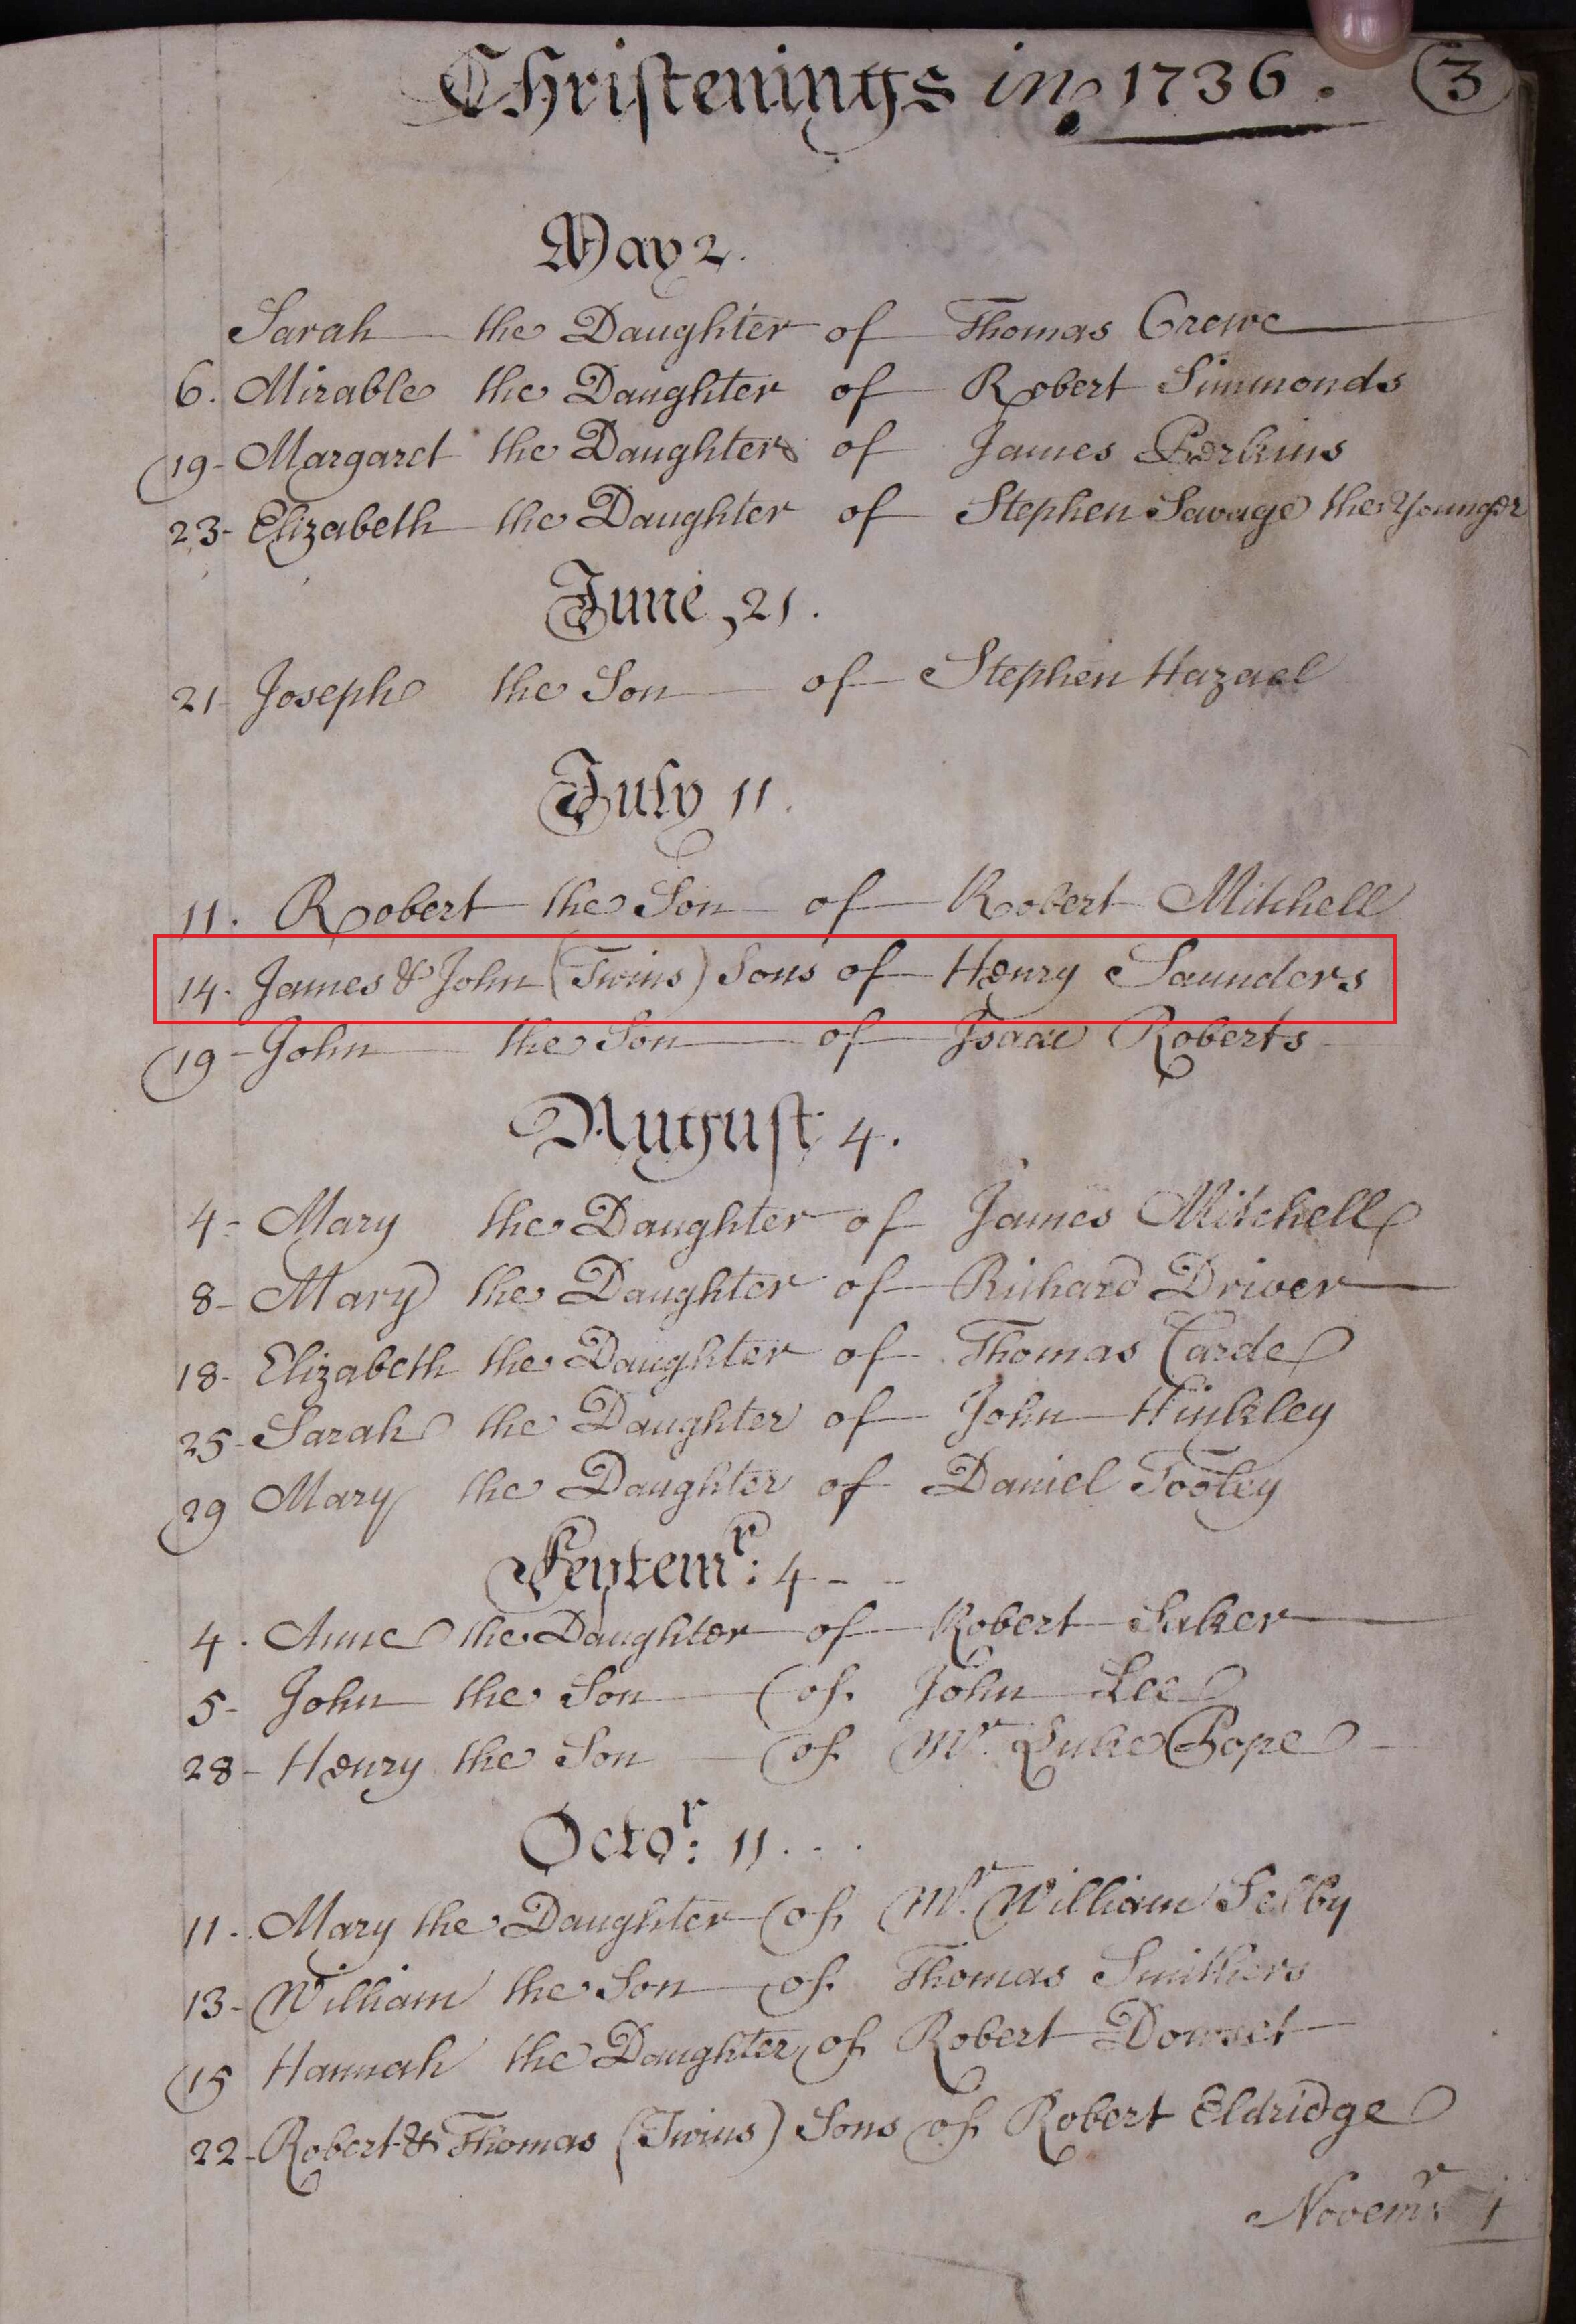 Christenings in 1736. 3
May 2.
Sarah the Daughter of Thomas Crowe
6. Mirable the Daughter of Robert Simmonds
19- Margaret the Daughter of James Perkins
23- Elizabeth the Daughter of Stephen Savage the Younger
June, 21.
21 Joseph the Son of Stephen Hazael
July 11.
11. Robert the Son of Robert Mitchell
14. James & John (Twins) Sons of Henry Saunders
19- John the Son of Isaac Roberts
August 4.
4- Mary the Daughter of James Mitchell
8- Mary the Daughter of Richard Driver
18- Elizabeth the Daughter of Thomas Carde
25- Sarah the Daughter of John Hinkley
29 Mary the Daughter of Daniel Tooley
Septemr: 4 - -
4. Anne the Daughter of Robert Saker
5- John the Son of John Lee
28- Henry the Son of Mr. Luke Pope
Octor: 11 . . .
11. Mary the Daughter of Mr. William Selby
13- William the Son of Thomas Smithers
15 Hannah the Daughter of Robert Dowset
22- Robert & Thomas (Twins) Sons of Robert Eldridge
Novemr: 4